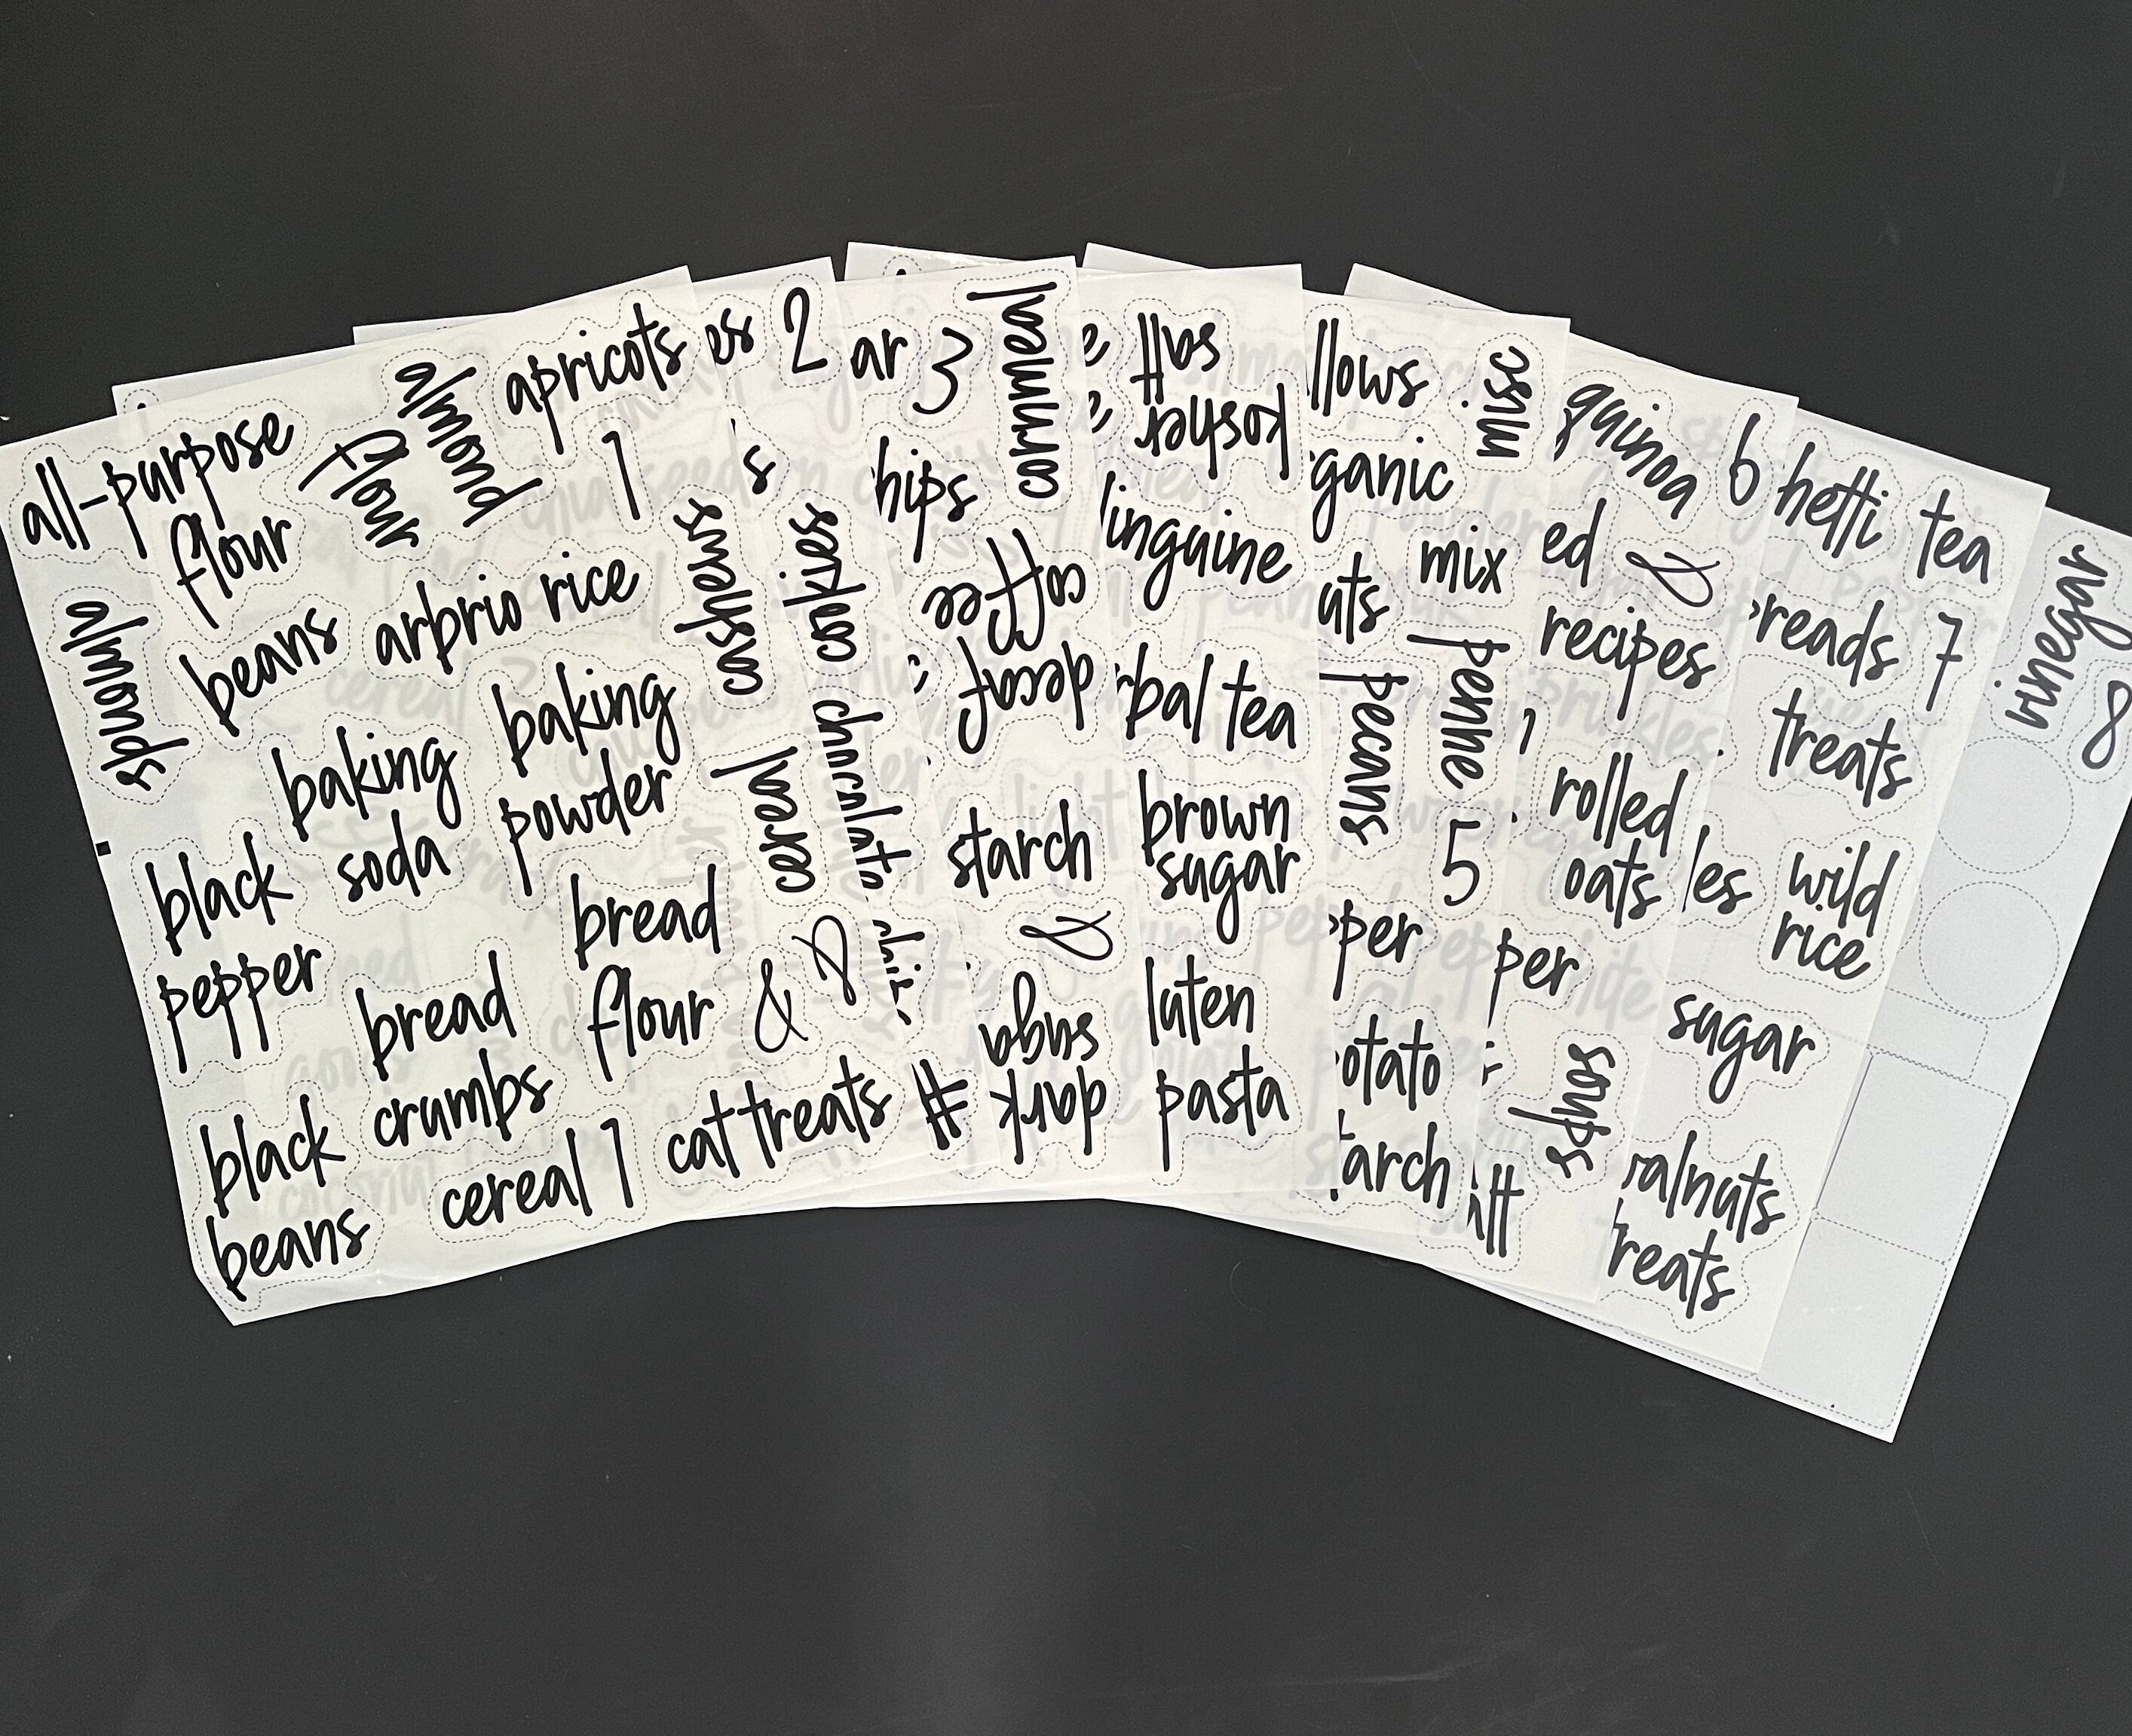 all-purpose
flour
almond
flour
apricots
1
almonds
beans
arbrio rice
cashews
baking
soda
baking
powder
cereal
black
pepper
bread
crumbs
bread
flour
&
black
beans
cereal 1
cat treats
es
2
s
cookies
chocolate
&
#
ar
3
cornmeal
hips
decaf
coffee
starch
&
dark
sugar
e
e
kosher
salt
linguine
rbal tea
brown
sugar
luten
pasta
llows
misc
ganic
mix
ats
penne
pecans
5
pper
otato
tarch
quinoa
6
ed
&
recipes
rolled
oats
per
soups
hetti
tea
reads
7
treats
les
wild
rice
sugar
alnuts
treats
vinegar
8